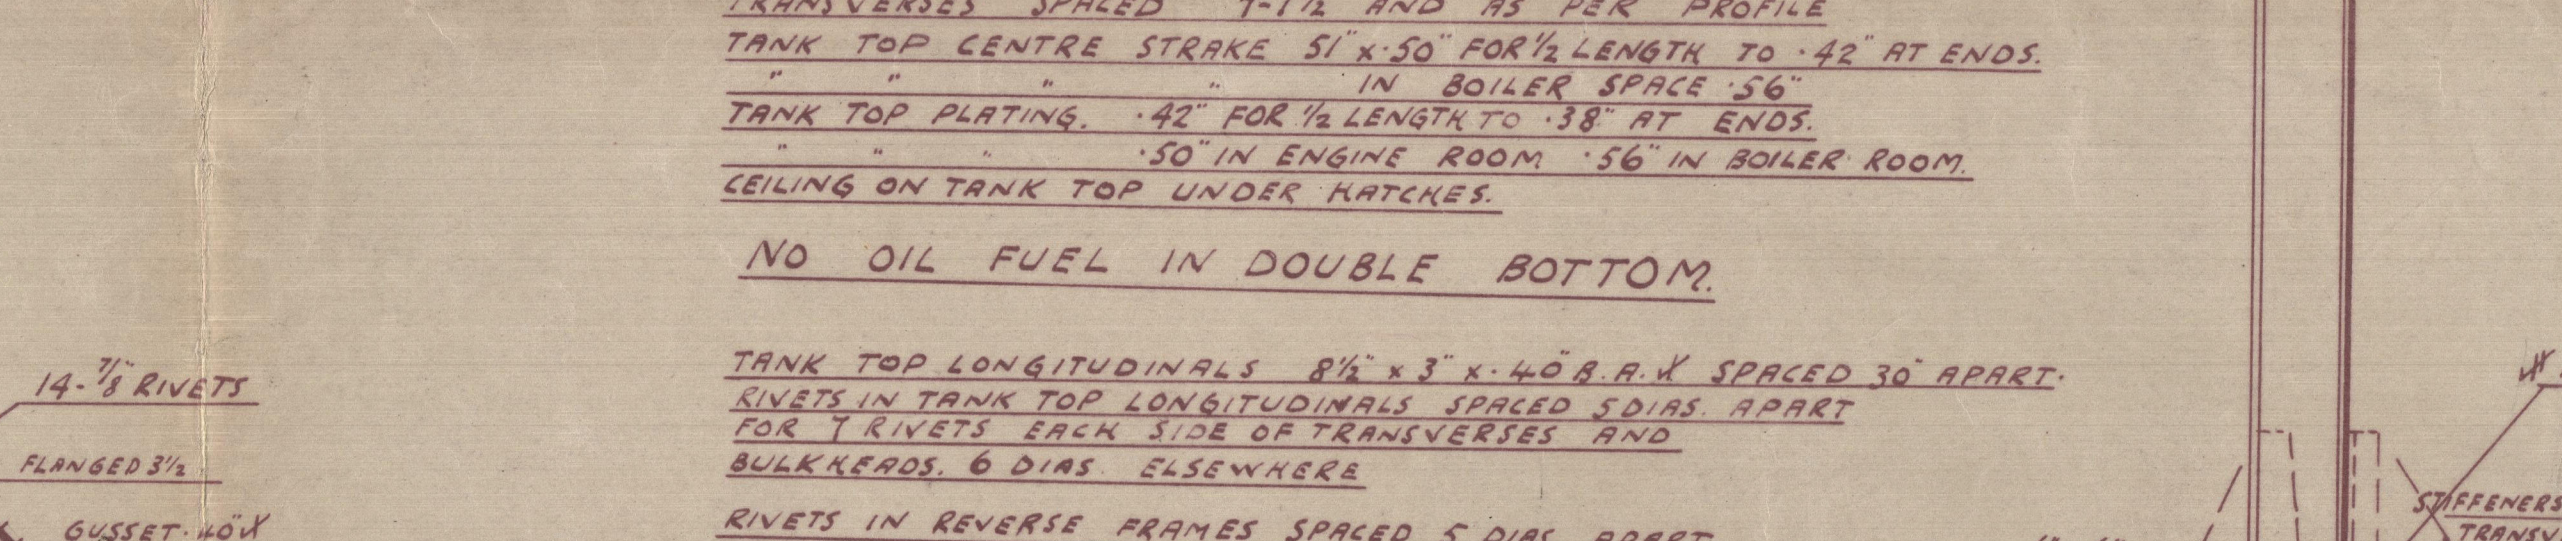 TRANSVERSES SPACED 7-1½ AND AS PER PROFILE
TANK TOP CENTRE STRAKE 51" x .50" FOR ½ LENGTH TO .42" AT ENDS.
" " " " IN BOILER SPACE .56"
TANK TOP PLATING. .42" FOR ½ LENGTH TO .38" AT ENDS.
" " " .50" IN ENGINE ROOM .56" IN BOILER ROOM.
CEILING ON TANK TOP UNDER HATCHES.
NO OIL FUEL IN DOUBLE BOTTOM.
TANK TOP LONGITUDINALS 8½" x 3" x .40" B.A. SPACED 30" APART.
RIVETS IN TANK TOP LONGITUDINALS SPACED 5 DIAS. APART
FOR 7 RIVETS EACH SIDE OF TRANSVERSES AND
BULKHEADS. 6 DIAS. ELSEWHERE
RIVETS IN REVERSE FRAMES SPACED 5 DIAS. APART
14-⅞" RIVETS
FLANGED 3½
GUSSET .40"
STIFFENERS
TRANSV